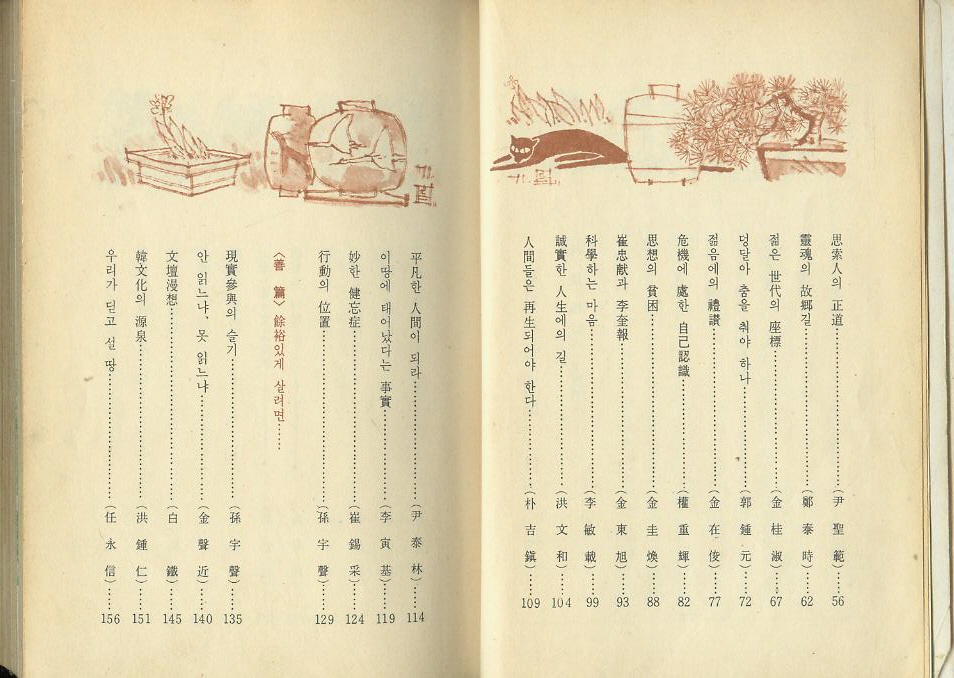 思索人의 正道……(尹聖範)……56
靈魂의 故郷길……(鄭泰時)……62
젊은 世代의 座標……(金桂淑)……67
덩달아 춤을 춰야 하나……(郭鍾元)……72
젊음에의 禮讃……(金在俊)……77
危機에 處한 自己認識……(權重輝)……82
思想의 貧困……(金圭煥)……88
崔忠献과 李奎報……(金東旭)……93
科學하는 마음……(李敏載)……99
誠實한 人生에의 길……(洪文和)……104
人間들은 再生되어야 한다……(朴吉鎭)……109
平凡한 人間이 되라……(尹泰林)……114
이 땅에 태어났다는 事實……(李寅基)……119
妙한 健忘症……(崔錫采)……124
行動의 位置……(孫宇聲)……129
〈善篇〉餘裕있게 살려면……
現實參與의 슬기……(孫宇聲)……135
안 읽느냐、못 읽느냐……(金聲近)……140
文壇漫想……(白鐵)……145
韓文化의 源泉……(洪鍾仁)……151
우리가 딛고 선 땅……(任永信)……156